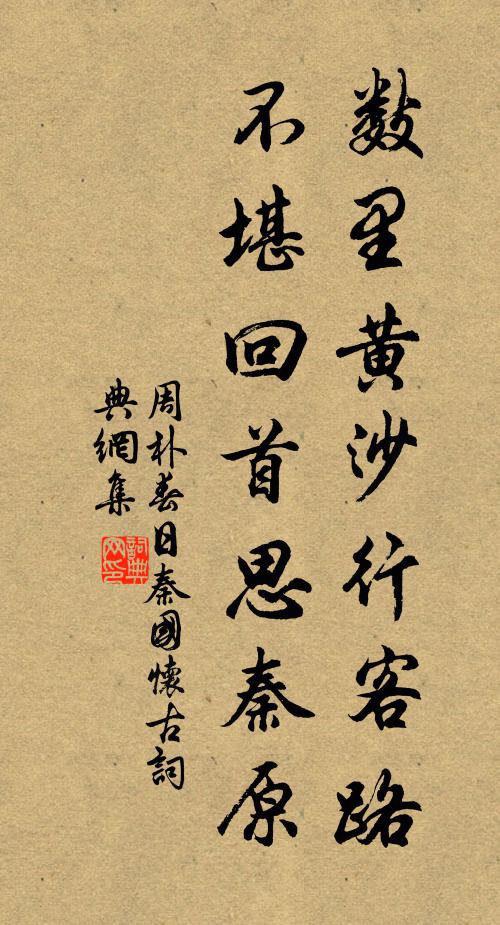 數里黃沙行客路
不堪回首思秦原
周朴春日秦國懷古詞
典網集
詞典
网印